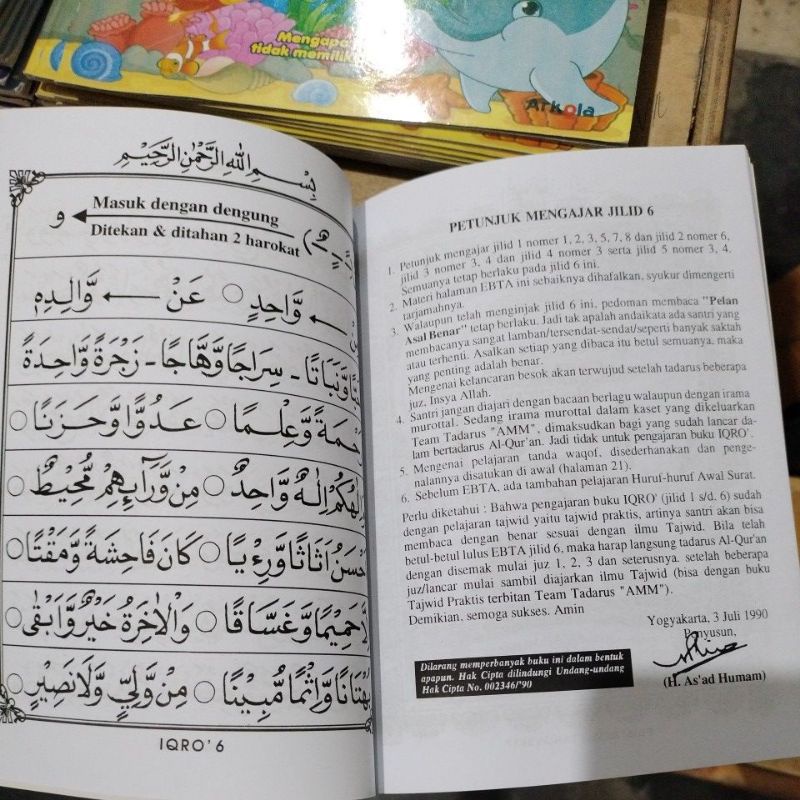 Mengapa
tidak memilik
Arkola
بِسْمِ اللهِ الرَّحْمٰنِ الرَّحِيْمِ
Masuk dengan dengung
و
Ditekan & ditahan 2 harokat
وَّاحِدٍ ○ عَنْ وَّالِدِهٖ
وَّنَبَاتًا - سِرَاجًا وَّهَّاجًا - زَجْرَةٌ وَّاحِدَةٌ
وَّعِلْمًا ○ عَدُوًّا وَّحَزَنًا ○
اِلٰهٌ وَّاحِدٌ ○ مِنْ وَّرَآىِٕهِمْ مُّحِيْطٌ ○
اَثَاثًا وَّرِءْيًا ○ كَانَ فَاحِشَةً وَّمَقْتًا ○
حَمِيْمًا وَّغَسَّاقًا ○ وَالْاٰخِرَةُ خَيْرٌ وَّاَبْقٰى ○
بُهْتَانًا وَّاِثْمًا مُّبِيْنًا ○ مِنْ وَّلِيٍّ وَّلَا نَصِيْرٍ ○
IQRO' 6
PETUNJUK MENGAJAR JILID 6
1. Petunjuk mengajar jilid 1 nomer 1, 2, 3, 5, 7, 8 dan jilid 2 nomer 6,
jilid 3 nomer 3, 4 dan jilid 4 nomer 3 serta jilid 5 nomer 3, 4.
Semuanya tetap berlaku pada jilid 6 ini.
2. Materi halaman EBTA ini sebaiknya dihafalkan, syukur dimengerti
tarjamahnya.
3. Walaupun telah menginjak jilid 6 ini, pedoman membaca "Pelan
Asal Benar" tetap berlaku. Jadi tak apalah andaikata ada santri yang
membacanya sangat lamban/tersendat-sendat/seperti banyak saktah
atau terhenti. Asalkan setiap yang dibaca itu betul semuanya, maka
yang penting adalah benar.
Mengenai kelancaran besok akan terwujud setelah tadarus beberapa
juz, Insya Allah.
4. Santri jangan diajari dengan bacaan berlagu walaupun dengan irama
murottal. Sedang irama murottal dalam kaset yang dikeluarkan
Team Tadarus "AMM", dimaksudkan bagi yang sudah lancar da-
lam bertadarus Al-Qur'an. Jadi tidak untuk pengajaran buku IQRO'.
5. Mengenai pelajaran tanda waqof, disederhanakan dan penge-
nalannya disatukan di awal (halaman 21).
6. Sebelum EBTA, ada tambahan pelajaran Huruf-huruf Awal Surat.
Perlu diketahui : Bahwa pengajaran buku IQRO' (jilid 1 s/d. 6) sudah
dengan pelajaran tajwid yaitu tajwid praktis, artinya santri akan bisa
membaca dengan benar sesuai dengan ilmu Tajwid. Bila telah
betul-betul lulus EBTA jilid 6, maka harap langsung tadarus Al-Qur'an
dengan disemak mulai juz 1, 2, 3 dan seterusnya. setelah beberapa
juz/lancar mulai sambil diajarkan ilmu Tajwid (bisa dengan buku
Tajwid Praktis terbitan Team Tadarus "AMM").
Demikian, semoga sukses. Amin
Yogyakarta, 3 Juli 1990
Penyusun,
(H. As'ad Humam)
Dilarang memperbanyak buku ini dalam bentuk
apapun. Hak Cipta dilindungi Undang-undang
Hak Cipta No. 002346/'90